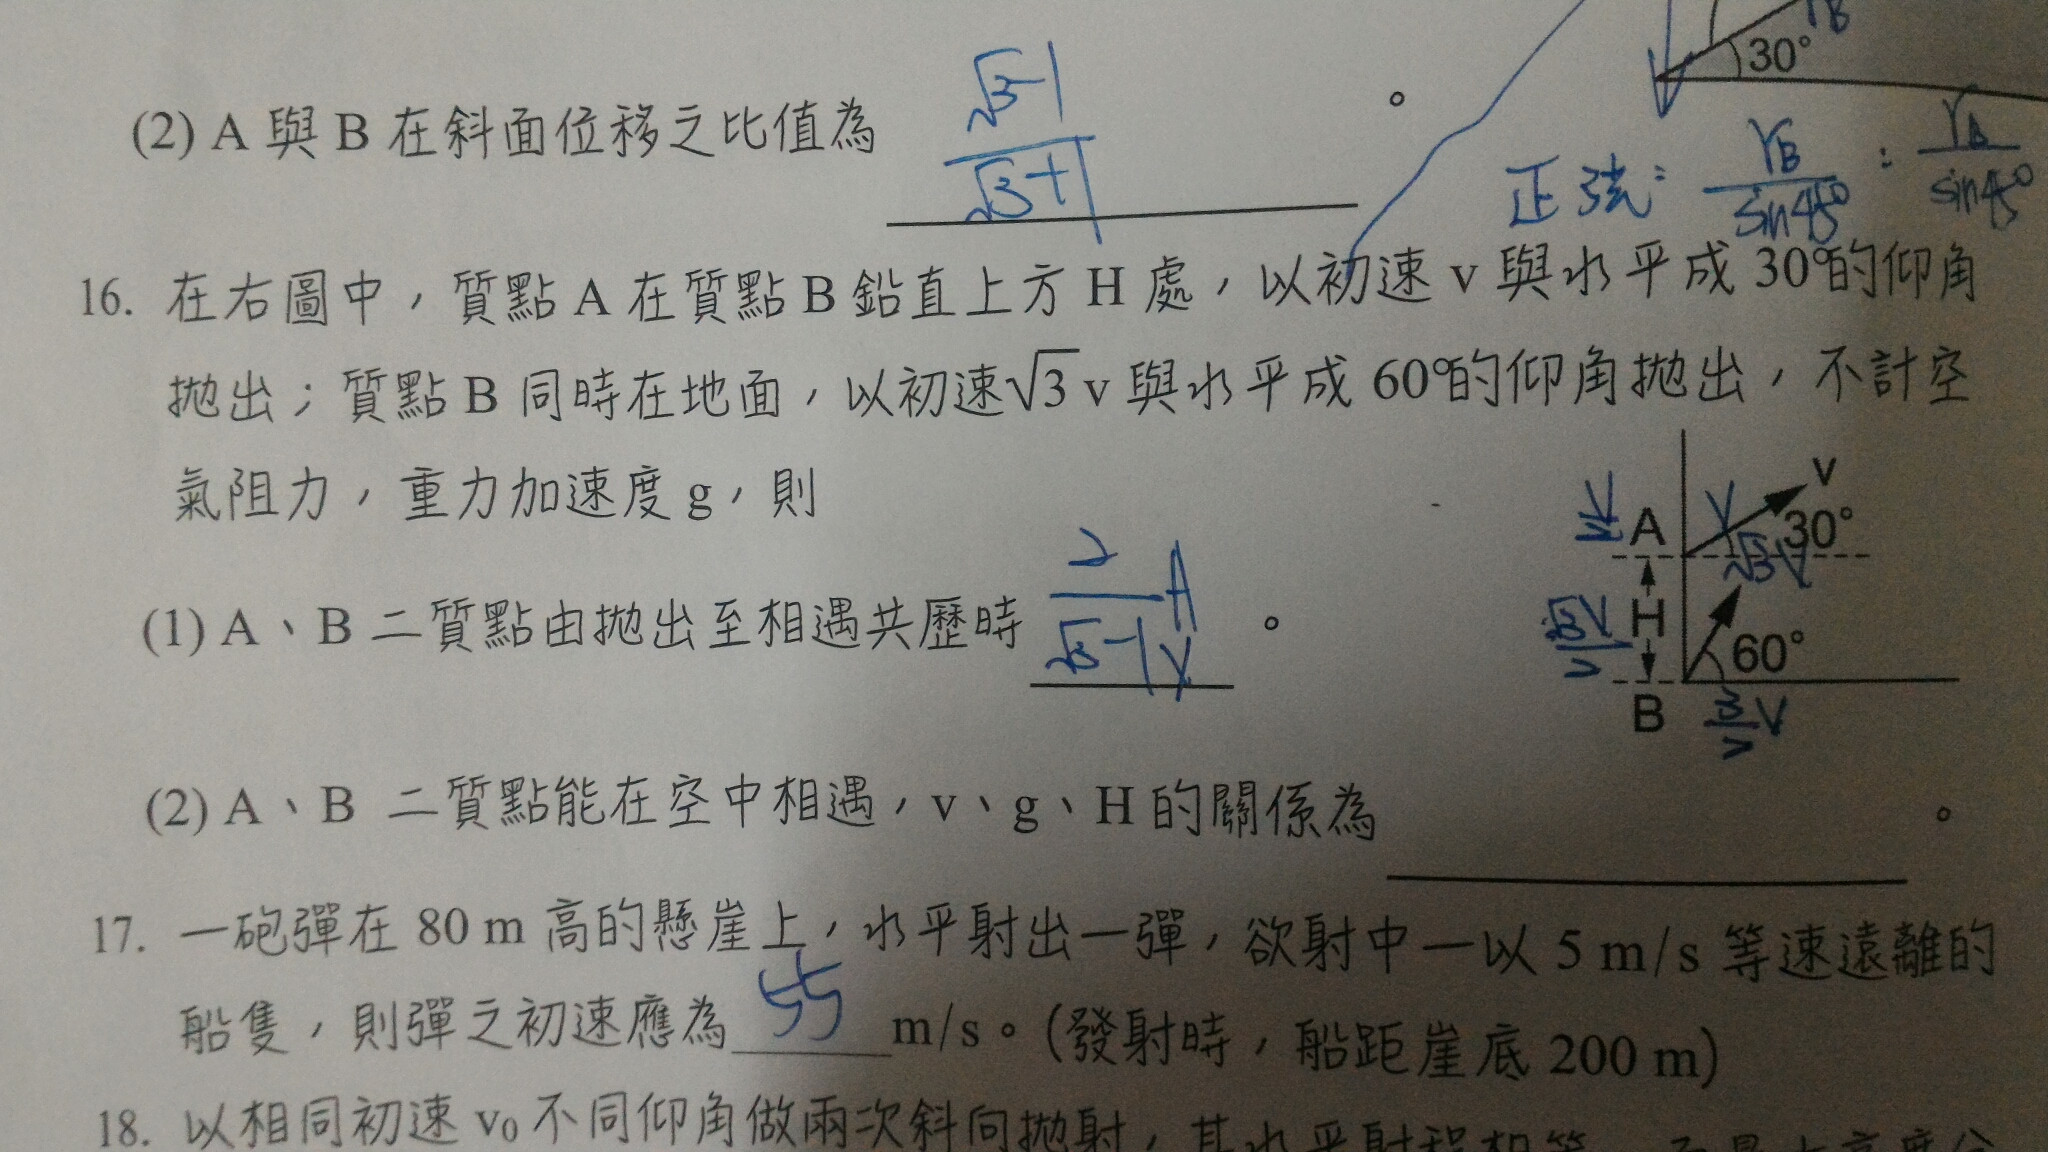 rB
30°
(2) A 與 B 在斜面位移之比值為 √3-1 / √3+1 。
正弦: rB/sin45° : rA/sin45°
16. 在右圖中，質點 A 在質點 B 鉛直上方 H 處，以初速 v 與水平成 30°的仰角
拋出；質點 B 同時在地面，以初速√3 v 與水平成 60°的仰角拋出，不計空
氣阻力，重力加速度 g，則
V
V
A
30°
√3V
H
60°
B
3/2 V
(1) A、B 二質點由拋出至相遇共歷時 。
(2) A、B 二質點能在空中相遇，v、g、H 的關係為 。
17. 一砲彈在 80 m 高的懸崖上，水平射出一彈，欲射中一以 5 m/s 等速遠離的
船隻，則彈之初速應為 55 m/s。(發射時，船距崖底 200 m)
18. 以相同初速 v0 不同仰角做兩次斜向拋射，其水平射程相等